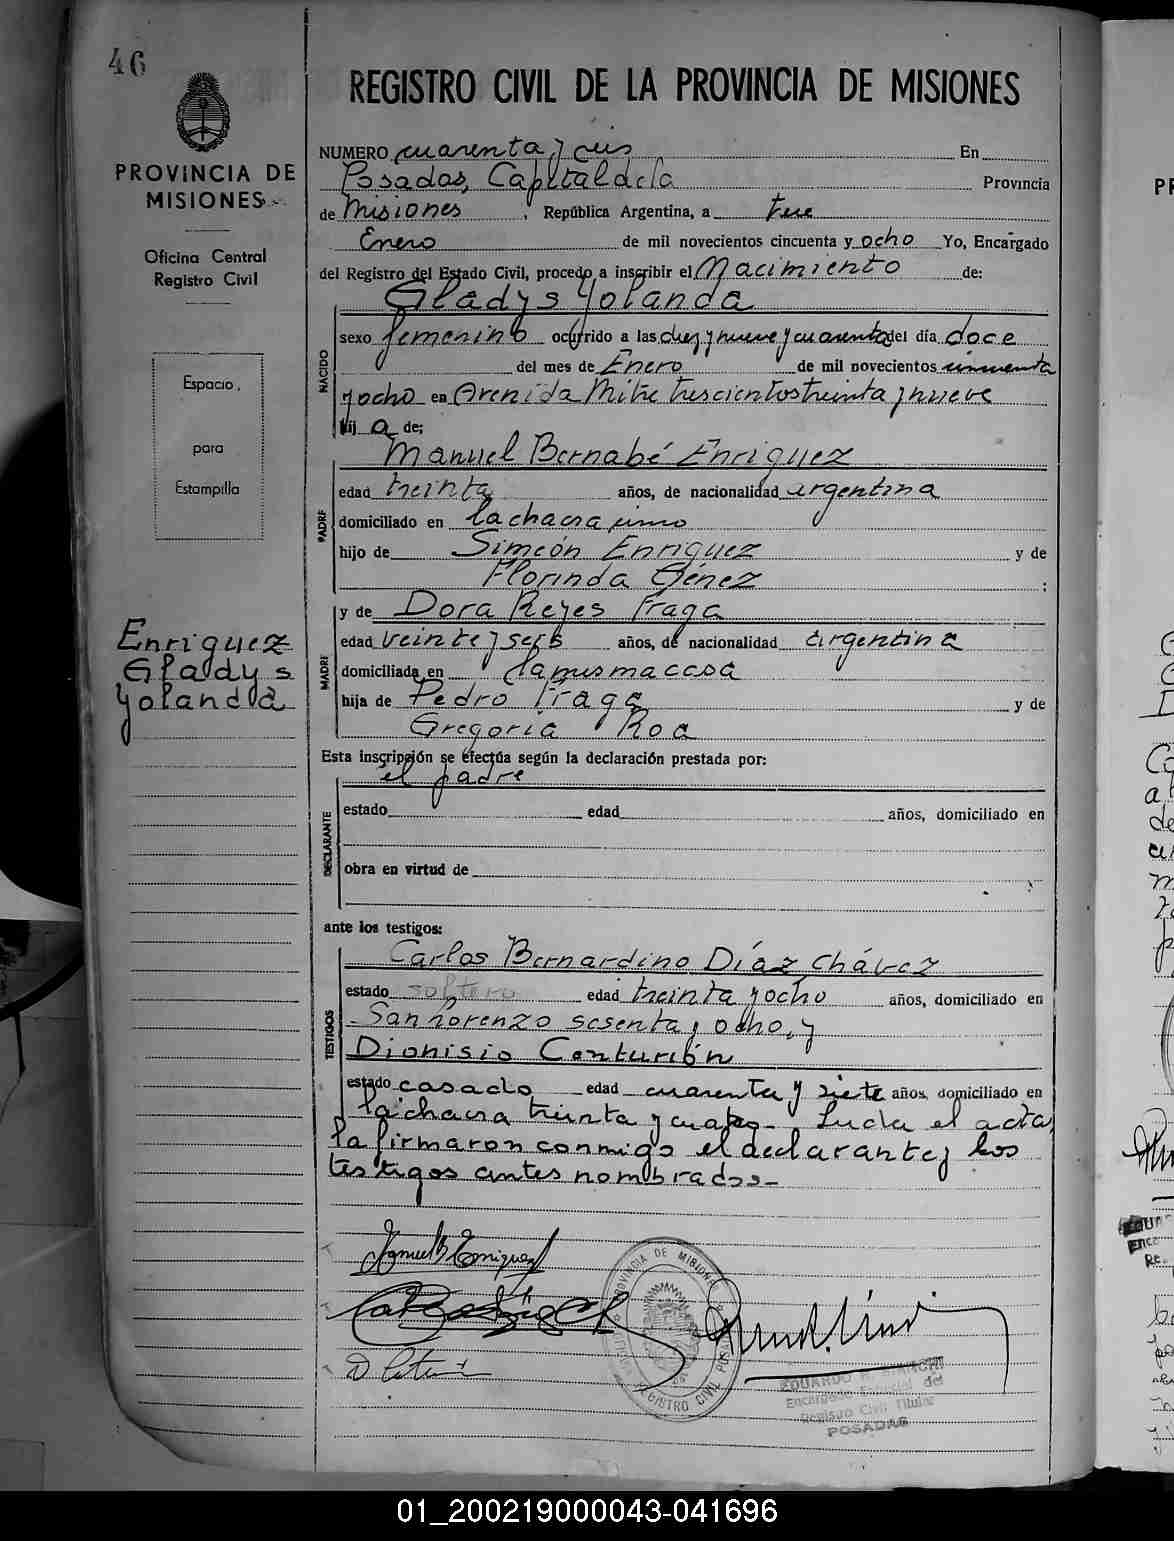 46
PROVINCIA DE
MISIONES
Oficina Central
Registro Civil
Espacio
para
Estampilla
Enriquez
Gladys
Yolanda
REGISTRO CIVIL DE LA PROVINCIA DE MISIONES
NUMERO cuarenta y seis En
Posadas, Capital de la Provincia
de Misiones, República Argentina, a trece
Enero de mil novecientos cincuenta y ocho Yo, Encargado
del Registro del Estado Civil, procedo a inscribir el Nacimiento de:
Gladys Yolanda
NACIDO
sexo femenino ocurrido a las diez y nueve y cuarenta del día doce
del mes de Enero de mil novecientos cincuenta
y ocho en Avenida Mitre trescientos treinta y nueve
hij a de:
Manuel Bernabé Enriquez
PADRE
edad treinta años, de nacionalidad argentina
domiciliado en la chacra uno
hijo de Simeón Enriquez y de
Florinda Génez ;
y de Dora Reyes Fraga
MADRE
edad veinte y seis años, de nacionalidad argentina
domiciliada en la misma casa
hija de Pedro Fraga y de
Gregoria Roa
Esta inscripción se efectúa según la declaración prestada por:
el padre
DECLARANTE
estado edad años, domiciliado en
obra en virtud de
ante los testigos:
Carlos Bernardino Díaz Chávez
TESTIGOS
estado soltero edad treinta y ocho años, domiciliado en
San Lorenzo sesenta y ocho, y
Dionisio Centurión
estado casado edad cuarenta y siete años, domiciliado en
la chacra treinta y cuatro. Leída el acta,
la firmaron conmigo el declarante y los
testigos antes nombrados.-
Manuel B Enriquez
PROVINCIA DE MISIONES
REGISTRO CIVIL POSADAS
EDUARDO R. BIANCHI
Encargado Especial del
Registro Civil Titular
POSADAS
01_200219000043-041696